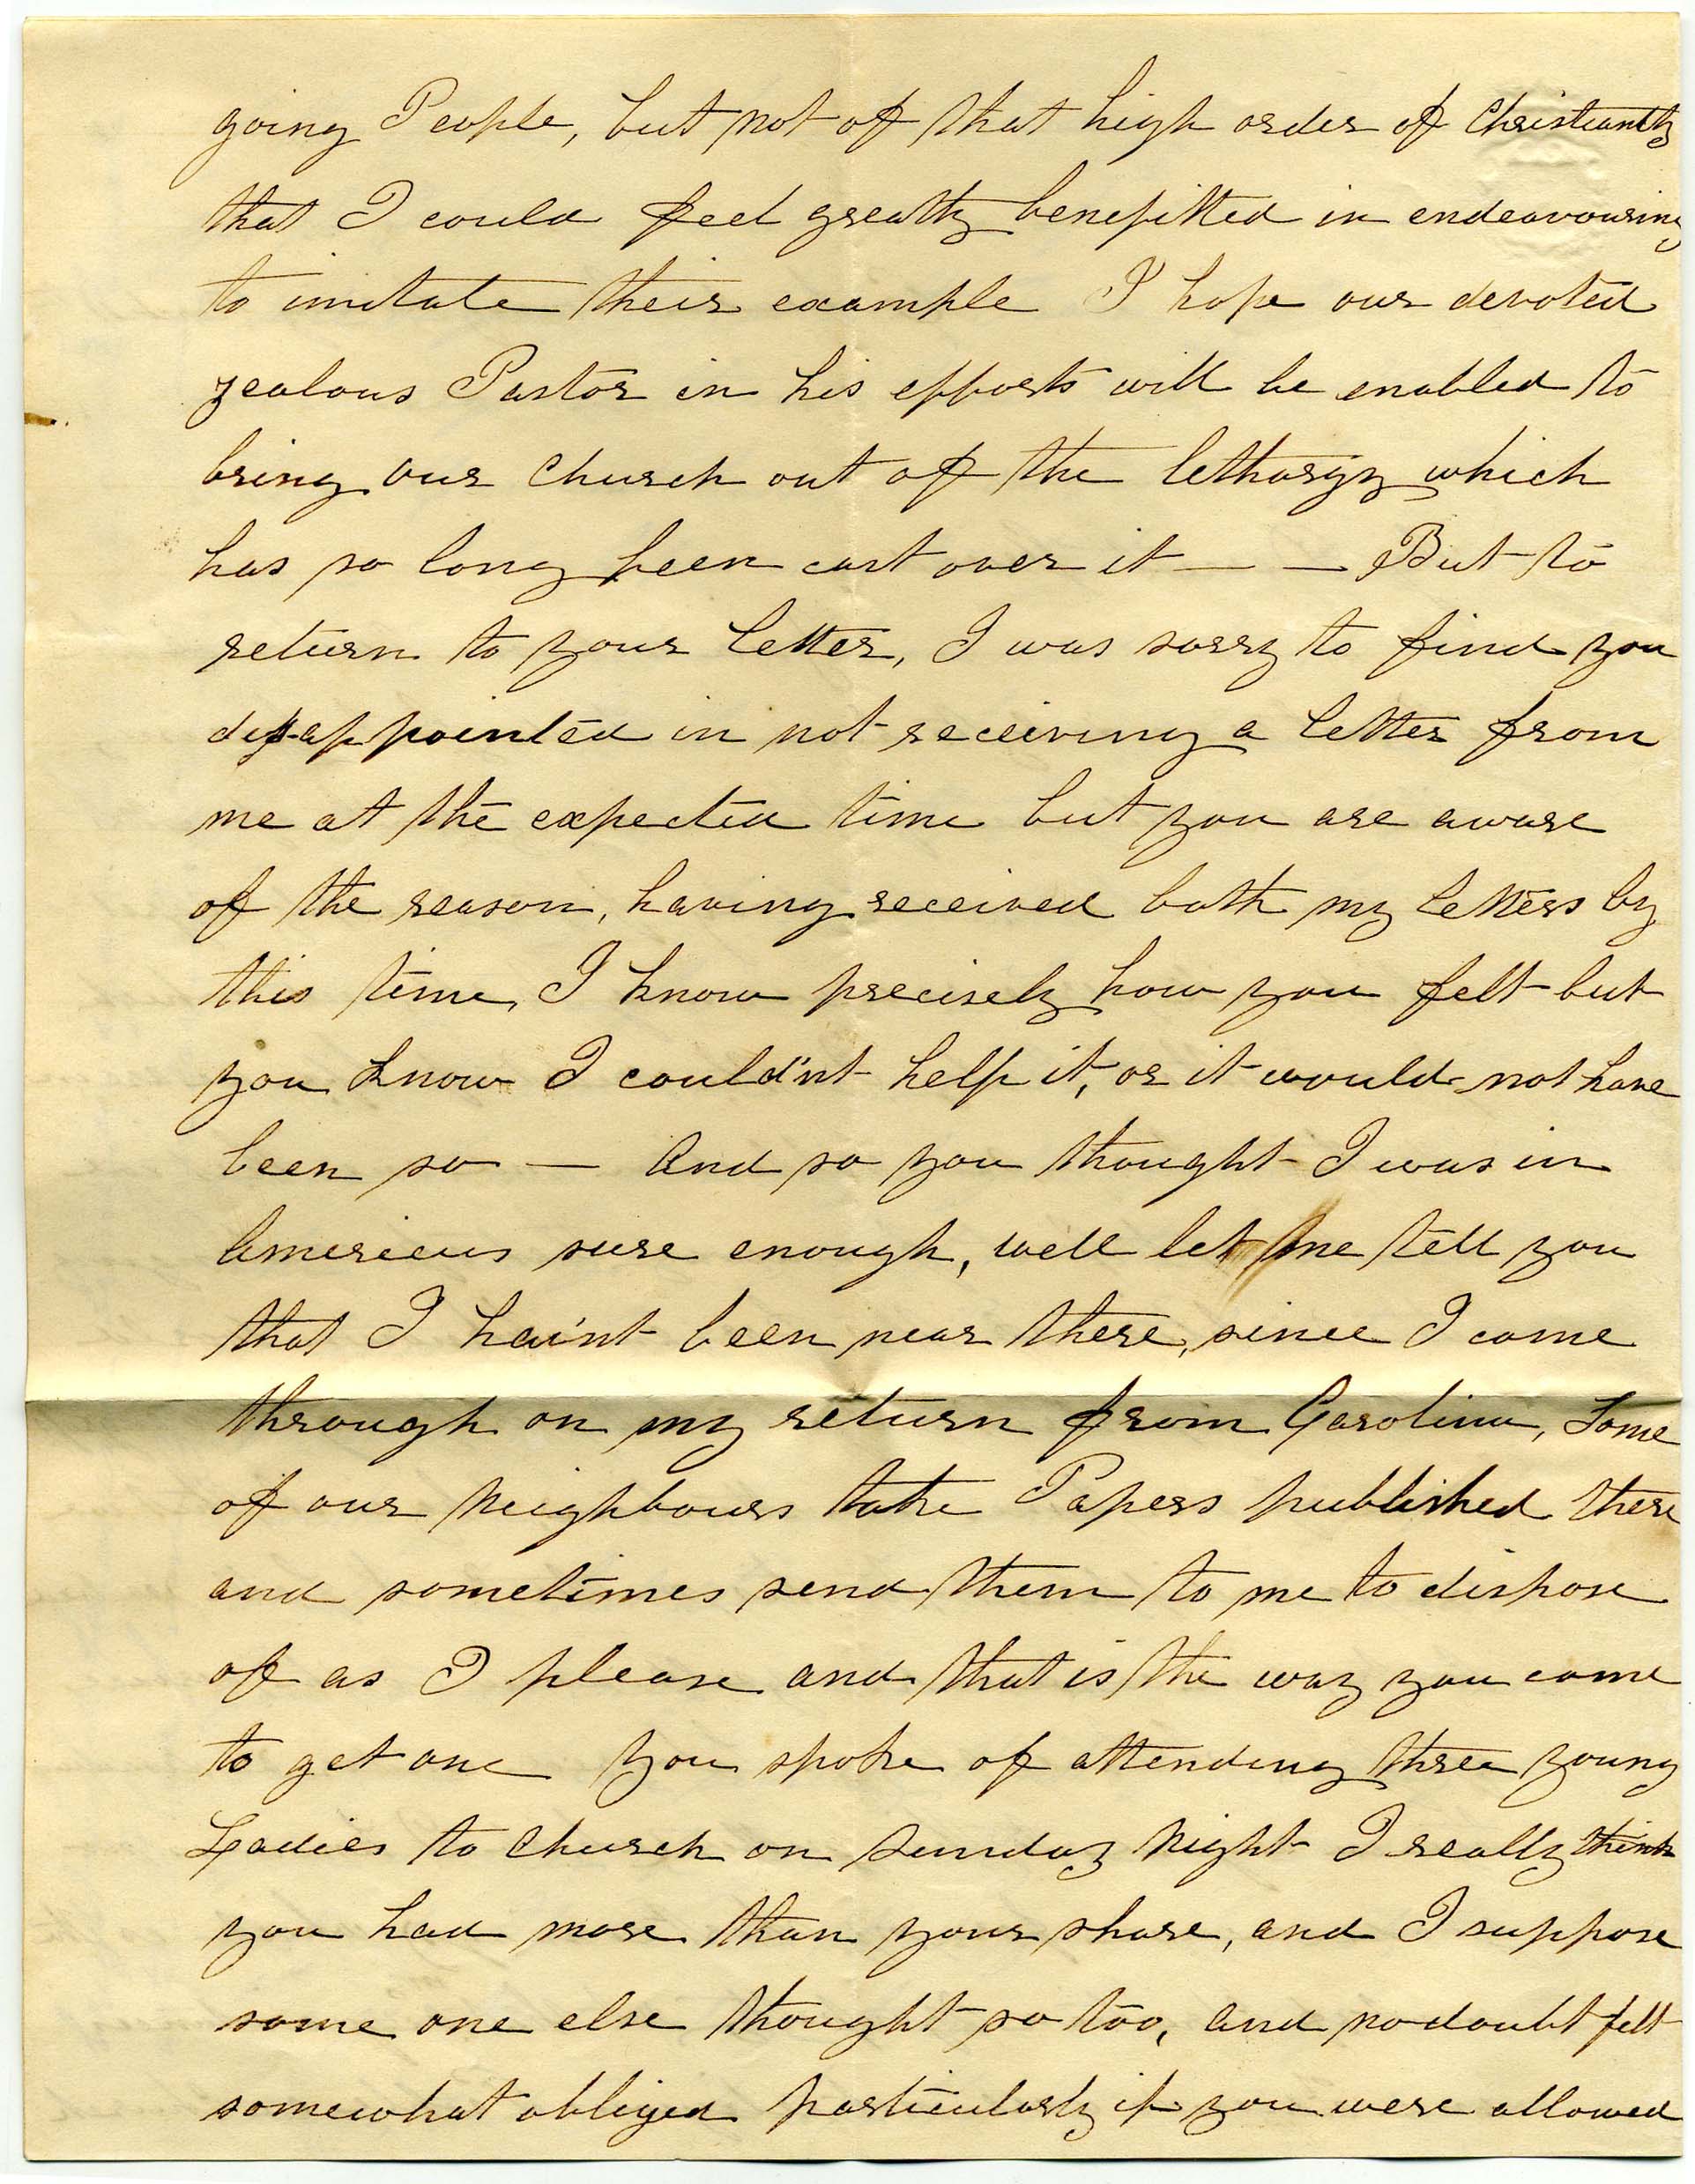 going People, but not of that high order of Christianity
that I could feel greatly benefitted in endeavouring
to imitate their example I hope our devoted
zealous Pastor in his efforts will be enabled to
bring our Church out of the lethargy which
has so long been cast over it — — But to
return to your letter, I was sorry to find you
disappointed in not receiving a letter from
me at the expected time but you are aware
of the reason, having received both my letters by
this time, I know precisely how you felt but
you know I could'nt help it, or it would not have
been so — And so you thought I was in
Americus sure enough, well let me tell you
that I hai'nt been near there, since I came
through on my return from Carolina, Some
of our Neighbours take Papers published there
and sometimes send them to me to dispose
of as I please and that is the way you came
to get one You spoke of attending three young
Ladies to Church on Sunday Night I really think
you had more than your share, and I suppose
some one else thought so too, and no doubt felt
somewhat obliged particularly if you were allowed